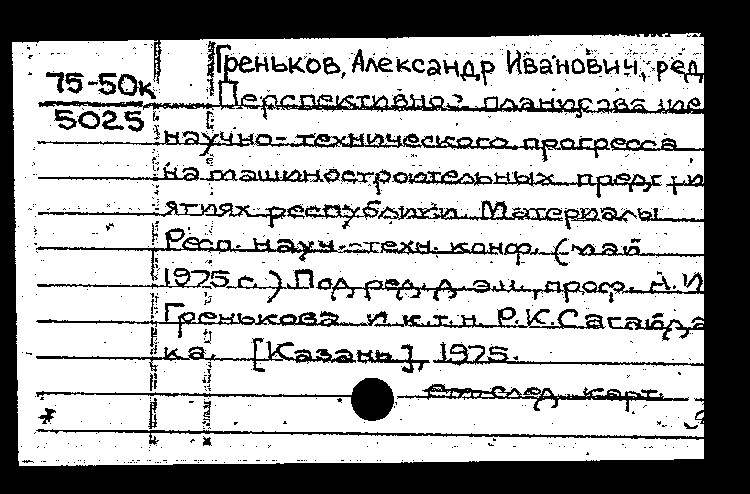 Греньков, Александр Иванович, ред
75-50к
5025
Перспективное планирование
научно-технического прогресса
на машиностроительных предпри
ятиях республики. Материалы
Респ. науч.-техн. конф. (май
1975 г.) Под ред. д. э.н., проф. А.И
Гренькова и к.т.н. Р.К.Сагайда
ка. [Казань], 1975.
см. след. карт.